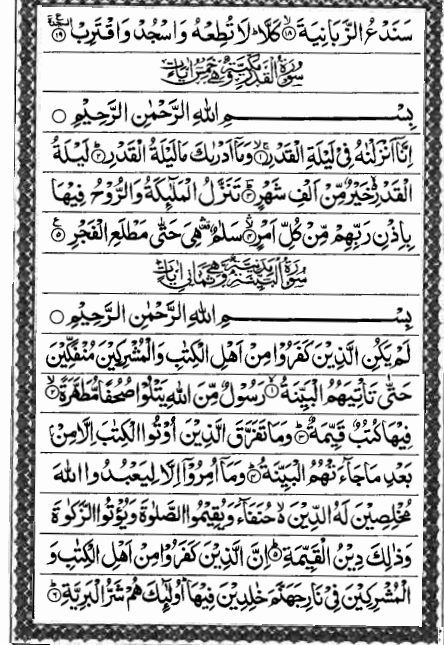 سَنَدْعُ الزَّبَانِيَةَ ﴿۱۸﴾ كَلَّا ؕ لَا تُطِعْهُ وَاسْجُدْ وَاقْتَرِبْ ﴿۱۹﴾
سُوْرَةُ الْقَدْرِ مَكِّيَّةٌ وَّهِيَ خَمْسُ اٰيَاتٍ
بِسْـــــمِ اللهِ الرَّحْمٰنِ الرَّحِيْمِ ○
اِنَّاۤ اَنْزَلْنٰهُ فِيْ لَيْلَةِ الْقَدْرِ ﴿۱﴾ وَمَاۤ اَدْرٰىكَ مَا لَيْلَةُ الْقَدْرِ ﴿۲﴾ لَيْلَةُ
الْقَدْرِ خَيْرٌ مِّنْ اَلْفِ شَهْرٍ ﴿۳﴾ تَنَزَّلُ الْمَلٰٓئِكَةُ وَالرُّوْحُ فِيْهَا
بِاِذْنِ رَبِّهِمْ مِّنْ كُلِّ اَمْرٍ ﴿۴﴾ سَلٰمٌ هِيَ حَتّٰى مَطْلَعِ الْفَجْرِ ﴿۵﴾
سُوْرَةُ الْبَيِّنَةِ مَدَنِيَّةٌ وَّهِيَ ثَمَانِيْ اٰيَاتٍ
بِسْـــــمِ اللهِ الرَّحْمٰنِ الرَّحِيْمِ ○
لَمْ يَكُنِ الَّذِيْنَ كَفَرُوْا مِنْ اَهْلِ الْكِتٰبِ وَالْمُشْرِكِيْنَ مُنْفَكِّيْنَ
حَتّٰى تَاْتِيَهُمُ الْبَيِّنَةُ ﴿۱﴾ رَسُوْلٌ مِّنَ اللهِ يَتْلُوْا صُحُفًا مُّطَهَّرَةً ﴿۲﴾
فِيْهَا كُتُبٌ قَيِّمَةٌ ﴿۳﴾ وَمَا تَفَرَّقَ الَّذِيْنَ اُوْتُوا الْكِتٰبَ اِلَّا مِنْۢ
بَعْدِ مَا جَآءَتْهُمُ الْبَيِّنَةُ ﴿۴﴾ وَمَاۤ اُمِرُوْۤا اِلَّا لِيَعْبُدُوا اللهَ
مُخْلِصِيْنَ لَهُ الدِّيْنَ ۙ حُنَفَآءَ وَيُقِيْمُوا الصَّلٰوةَ وَيُؤْتُوا الزَّكٰوةَ
وَذٰلِكَ دِيْنُ الْقَيِّمَةِ ﴿۵﴾ اِنَّ الَّذِيْنَ كَفَرُوْا مِنْ اَهْلِ الْكِتٰبِ وَ
الْمُشْرِكِيْنَ فِيْ نَارِ جَهَنَّمَ خٰلِدِيْنَ فِيْهَا ؕ اُولٰٓئِكَ هُمْ شَرُّ الْبَرِيَّةِ ﴿۶﴾